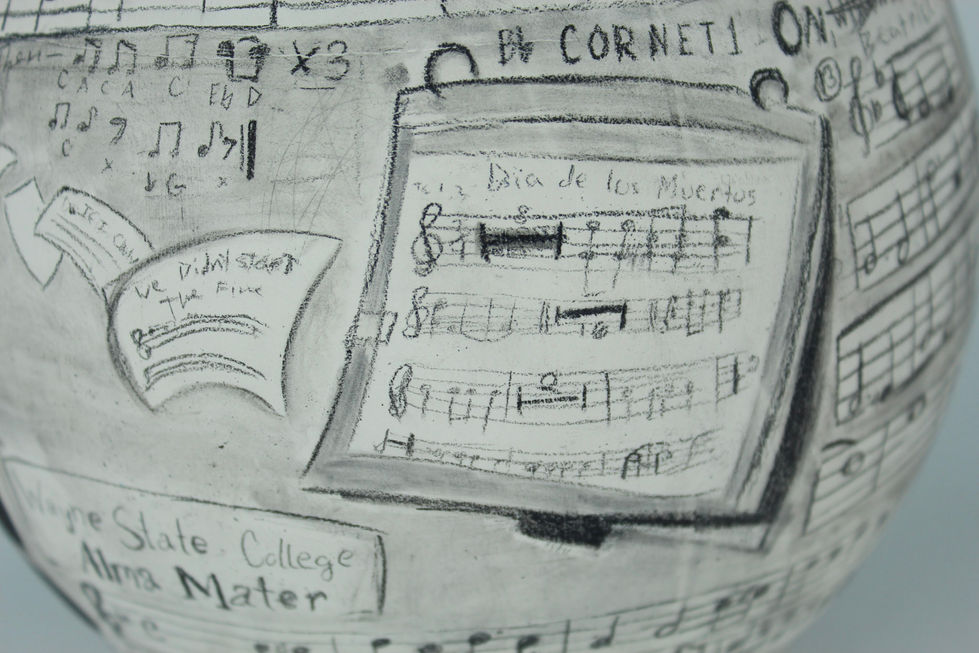 X3
C A C A C E♭ D
C x
G x
B♭ CORNET 1
ON
13
Dia de los Muertos
8
16
2
We Didn't Start
The Fire
Wayne State College
Alma Mater